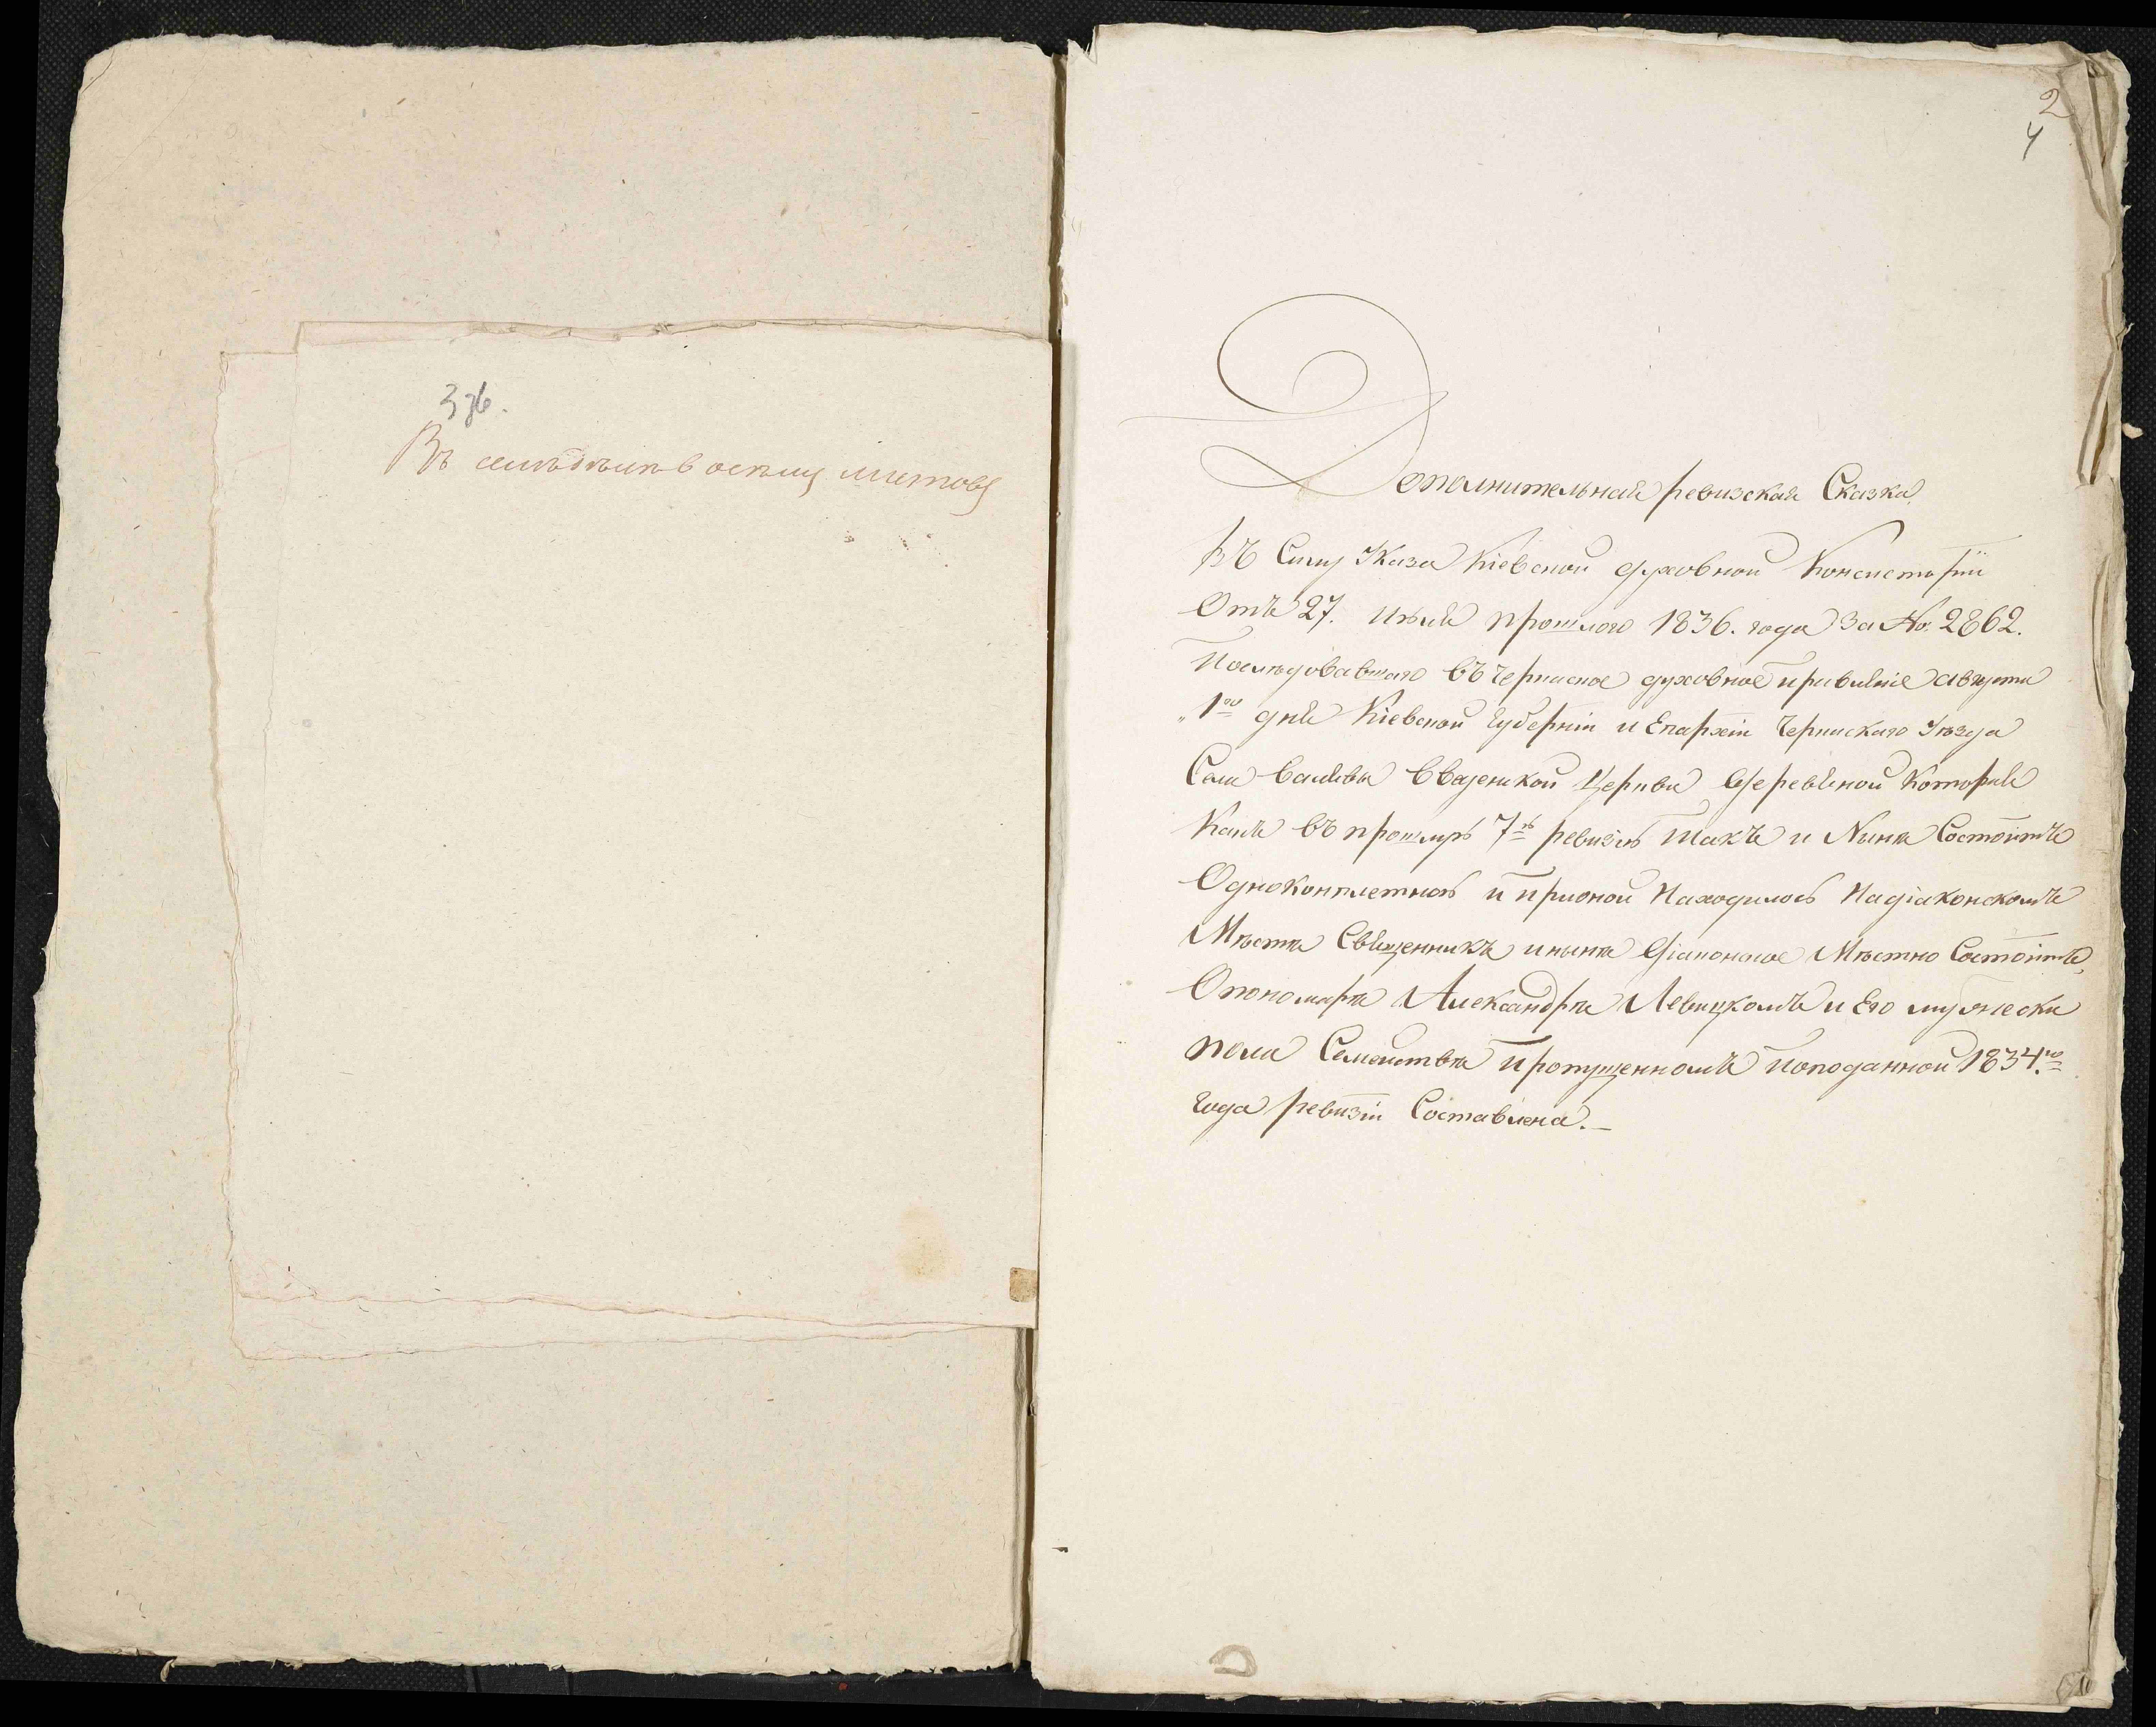 336.
Въ листовъ
2
4
Дополнительная ревизская Сказка
Въ Силу Указа Кіевской духовной Консисторіи
Отъ 27. Июля прошлого 1836. года За №. 2862.
Последовавшаго въ черкаское духовное правленіе августа
„1го дня Кіевской Губерніи и Епархіи Черкаскаго Уезда
Села Валявы Введенской Церкви деревяной Которая
Какъ въ прошлую 7ю ревизію Такъ и Нынѣ Состоитъ
Однокомплетною и при оной Находилось На діаконскомъ
Мѣстѣ Священникъ и нынѣ діаконское Мѣсто Состоитъ,
О пономарѣ Александрѣ Левицкомъ и Его мужеска
пола Семействѣ пропущенномъ по поданной 1834.го
года ревизіи Составлена.—